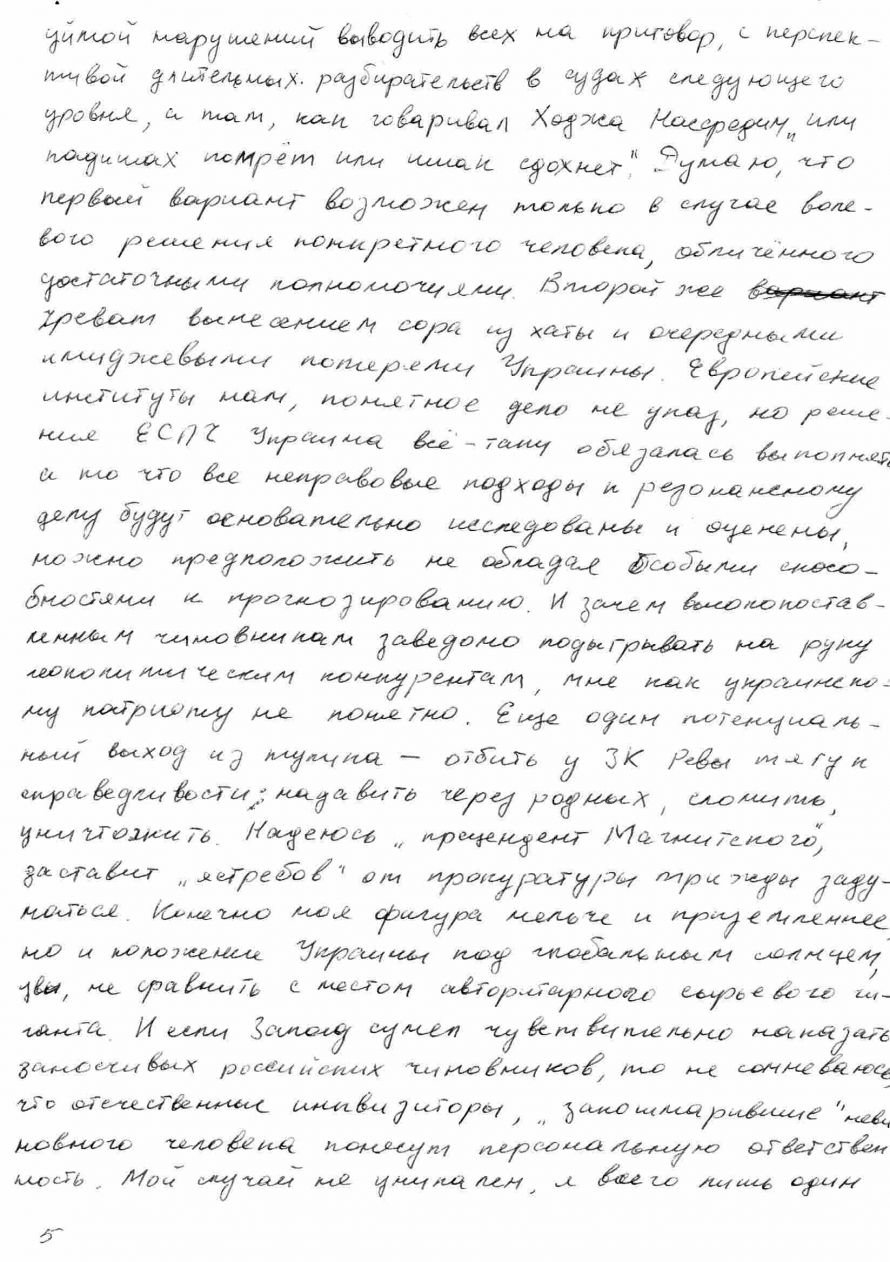 уймой нарушений выводить всех на приговор, с перспек-
тивой длительных разбирательств в судах следующего
уровня, а там, как говаривал Ходжа Насредин „или
падишах помрёт или ишак сдохнет". Думаю, что
первый вариант возможен только в случае воле-
вого решения конкретного человека, обличённого
достаточными полномочиями. Второй же вариант
чреват вынесением сора из хаты и очередными
имиджевыми потерями Украины. Европейские
институты нам, понятное дело не указ, но реше-
ния ЕСПЧ Украина всё-таки обязалась выполнять
а то что все неправовые подходы к резонансному
делу будут основательно исследованы и оценены,
можно предположить не обладая особыми спосо-
бностями к прогнозированию. И зачем высокопостав-
ленным чиновникам заведомо подыгрывать на руку
геополитическим конкурентам, мне как украинско-
му патриоту не понятно. Еще один потенциаль-
ный выход из тупика — отбить у ЗК Ревы тягу к
справедливости; надавить через родных, сломить,
уничтожить. Надеюсь „прецендент Магнитского",
заставит „ястребов" от прокуратуры трижды заду-
маться. Конечно моя фигура мельче и приземленнее,
но и положение Украины под глобальным солнцем,
увы, не сравнить с местом авторитарного сырьевого ги-
ганта. И если Запад сумел чувствительно наказать
заносчивых российских чиновников, то не сомневаюсь,
что отечественные инквизиторы, „закошмарившие" неви
новного человека понесут персональную ответствен
ность. Мой случай не уникален, я всего лишь один
5